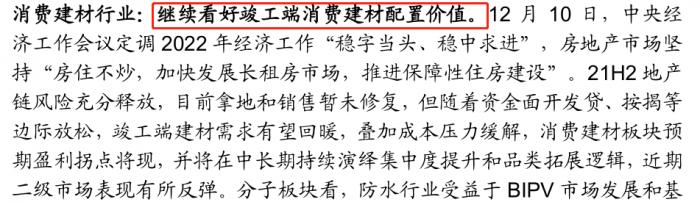 消费建材行业：继续看好竣工端消费建材配置价值。12 月 10 日，中央经
济工作会议定调 2022 年经济工作“稳字当头、稳中求进”，房地产市场坚
持“房住不炒，加快发展长租房市场，推进保障性住房建设”。21H2 地产
链风险充分释放，目前拿地和销售暂未修复，但随着资金面开发贷、按揭等
边际放松，竣工端建材需求有望回暖，叠加成本压力缓解，消费建材板块预
期盈利拐点将现，并将在中长期持续演绎集中度提升和品类拓展逻辑，近期
二级市场表现有所反弹。分子板块看，防水行业受益于 BIPV 市场发展和基